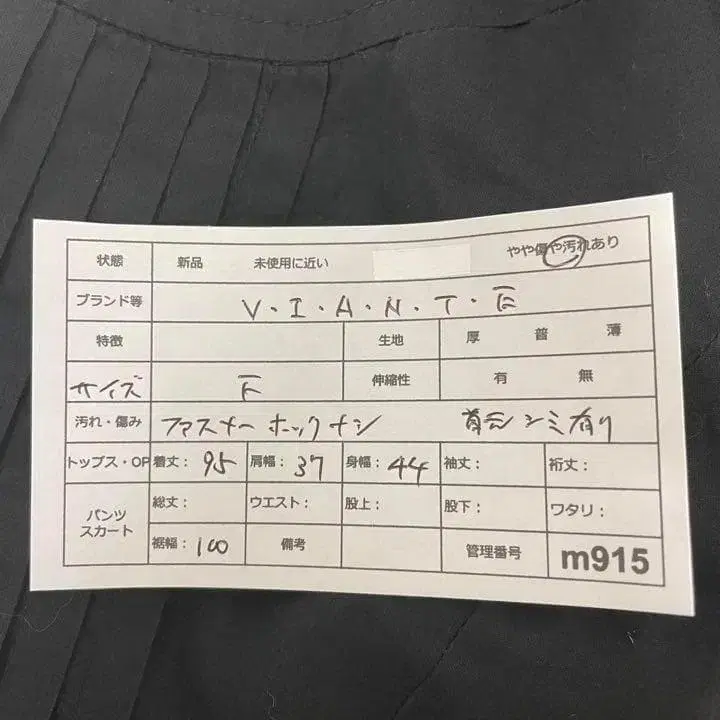 状態 新品 未使用に近い やや傷や汚れあり
ブランド等 V・I・A・N・T・E
特徴 生地 厚 普 薄
サイズ F 伸縮性 有 無
汚れ・傷み ファスナーホックナシ 首元シミ有り
トップス・OP 着丈: 95 肩幅: 37 身幅: 44 袖丈: 裄丈:
パンツ スカート 総丈: ウエスト: 股上: 股下: ワタリ:
裾幅: 100 備考 管理番号 m915